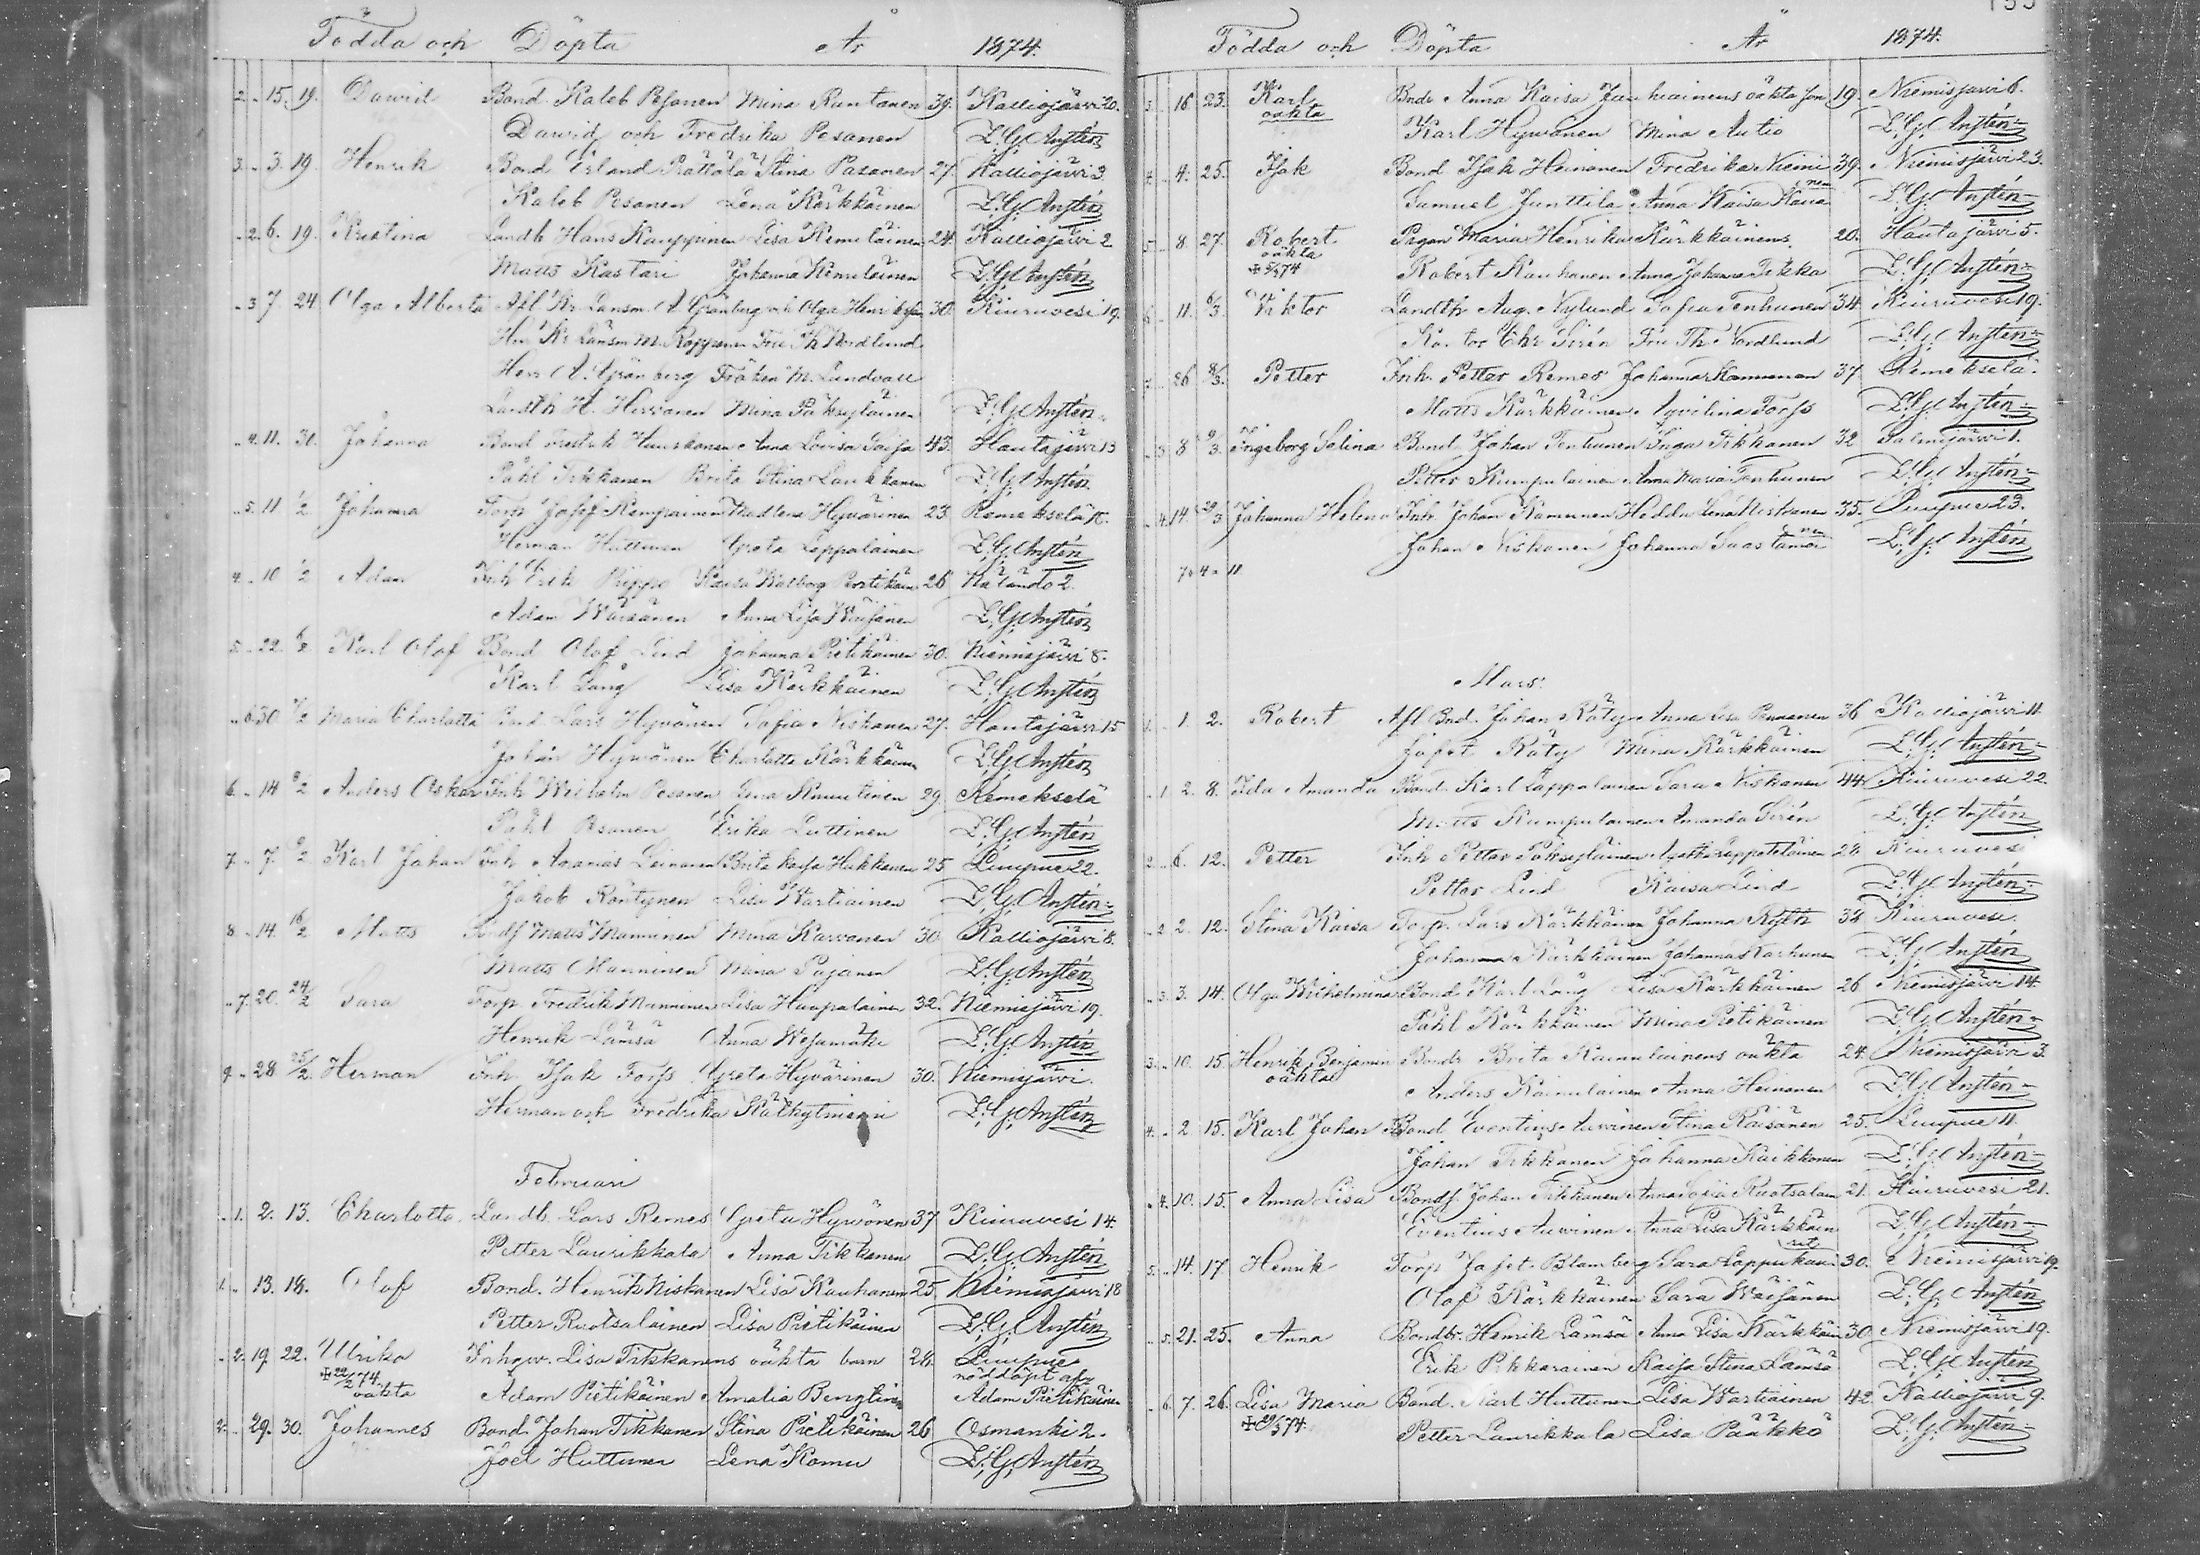 Födda och Döpta År 1874.
2. 15. 19. Dawid Bond Kaleb Pesonen Mina Runtanen 39. Kalliojärvi 20.
Dawid och Fredrika Pesanen L. G. Anstén
3. 3. 19. Henrik Bond Erland Stina Pasanen 27. Kalliojärvi 3.
Kaleb Pesanen Lena Kärkkäinen L. G. Anstén
2. 6. 19. Kristina Landb Hans Kauppinen Lisa Kemiläinen 24. Kalliojärvi 2
Matts Kastari Johanna Kemiläinen L. G. Anstén
3. 7. 24. Olga Alberta Afl Kr Länsm A Granberg och Olga 30. Kiuruvesi 19.
Herr Kr Länsm M. Roppanen Fru Th Nordlund
Herr A. Granberg Fröken M. Lundvall
Landth H. Hirvonen Mina L. G. Anstén
4. 11. 31. Johanna Bond Fredrik Huuskonen Anna Lovisa 43. Hautajärvi 13
Påhl Tikkanen Brita Stina Laukkanen L. G. Anstén
5. 11 1/2 Johanna Torp Josef Kempainen Madlena Hyvärinen 23 Remekselä
Herman Huttunen Greta Lappalainen L. G. Anstén
4. 10 1/2 Adam Inh Erik Piippo Kaisa Walborg 26 Näläntö 2.
Adam Wäisänen Anna Lisa Wäisänen L. G. Anstén
5. 22. 6/2 Karl Olof Bond Olof Lind Johanna Pietikäinen 30. Niemisjärvi 8.
Karl Lång Lisa Kärkkäinen L. G. Anstén
6. 30. 7/2 Maria Charlotta Bond Lars Hyvönen Sofia Niskanen 27. Hautajärvi 15
Johan Hyvönen Charlotta Kärkkäinen L. G. Anstén
6. 14 8/2 Anders Oskar Inh Wilhelm Pesonen Lena Knuutinen 29. Remekselä
Påhl Pesanen Erika Luttinen L. G. Anstén
7. 7. 9/2 Karl Johan Inh Ananias Leinonen Brita Kaisa Hakkanen 25 Luupue 22.
Jakob Röntynen Lisa Wartiainen L. G. Anstén
8. 14. 16/2 Matts Matts Manninen Mina Karvonen 30. Kalliojärvi 8.
Matts Manninen Mina Pajanen L. G. Anstén
7. 20. 24/2 Sara Torp Fredrik Manninen Lisa Huupalainen 32. Niemisjärvi 19.
Henrik Lämsä Anna Wesamäki L. G. Anstén
9. 28 25/2. Herman Inh Isak Forss Greta Hyvärinen 30. Niemisjärvi.
Herman och Fredrika Kälkytniemi L. G. Anstén
Februari
1. 2. 13. Charlotta Landb. Lars Remes Greta Hyvönen 37 Kiuruvesi 14.
Petter Laurikkala Anna Tikkanen L. G. Anstén
1. 13. 18. Olof Bond. Henrik Niskanen Lisa Kauhanen 25. Niemisjärvi 18
Petter Ruotsalainen Lisa Pietikäinen L. G. Anstén
2. 19. 22. Ulrika Inhqv. Lisa Tikkanens oäkta barn 28. Luupue
✠ 22/2 74. oäkta nöddöpt af
Adam Pietikäinen Amalia Adam Pietikäinen
2. 29. 30. Johannes Bond Johan Tikkanen Stina Pietikäinen 26 Osmanki 2.
Joel Huttunen Lena Komu L. G. Anstén
Födda och Döpta År 1874.
3. 16 23. Karl Bndr Anna Kaisa Jauhiainens oäkta son 19. Niemisjärvi 6.
oäkta Karl Hyvönen Mina Autio L. G. Anstén
4. 4. 25. Isak Bond Isak Heinonen Fredrika Niemi 39. Niemisjärvi 23.
Samuel Junttila Anna Kaisa L. G. Anstén
5. 8. 27. Robert Pigan Maria Henrika Kärkkäinens 20. Hautajärvi 5.
oäkta Robert Kauhanen Anna Johanna Tikka L. G. Anstén
11. 6/3 Viktor Landth Aug. Nylund Sofia Tenhunen 34. Kiuruvesi 19.
Kantor Chr Sirén Fru Th. Nordlund L. G. Anstén
7. 26 8/3. Petter Inh. Petter Remes Johanna 37. Remekselä
Matts Kärkkäinen Aqvilina Forss L. G. Anstén
3. 8 9/3. Ingeborg Selina Bond Johan Tenhunen Inga Tikkanen 32 Salmijärvi 1.
Petter Kumpulainen Anna Maria Tenhunen L. G. Anstén
4. 14. 29/3 Johanna Helena Inh Johan Kämmunen Hedda Lena Niskanen 35. Luupue 23.
Johan Niskanen Johanna Saastamoinen L. G. Anstén
7 + 4 = 11
Mars.
1. 1. 2. Robert Afl Bnd. Johan Räty Anna Lisa 36 Kalliojärvi 11.
Jafet Räty Mina Kärkkäinen L. G. Anstén
1. 2. 8. Ida Amanda Bond. Karl Lappalainen Sara Niskanen 44. Kiuruvesi 22.
Matts Kumpulainen Amanda Sirén L. G. Anstén
2. 6. 12. Petter Inh Petter Agatha Lappeteläinen 28 Kiuruvesi
Petter Lind Kaisa Lind L. G. Anstén
2. 2. 12. Stina Kaisa Torp. Lars Kärkkäinen Johanna 38 Kiuruvesi.
Johannes Kärkkäinen Johanna Karhunen L. G. Anstén
3. 3. 14. Olga Wilhelmina Bond Karl Lång Lisa Kärkkäinen 26 Niemisjärvi 14.
Påhl Kärkkäinen Mina Pietikäinen L. G. Anstén
3. 10. 15. Henrik Benjamin Bondr Brita Kainulainens oäkta 24. Niemisjärvi 3.
oäkta Anders Kainulainen Anna Heinonen L. G. Anstén
4. 2 15. Karl Johan Bond Eventius Auvinen Stina Räisänen 25. Luupue 11.
Johan Tikkanen Johanna Kaikkonen L. G. Anstén
4. 10. 15. Anna Lisa Bonds. Johan Tikkanen Anna Sofia Ruotsalain 21. Kiuruvesi 21.
Eventius Auvinen Anna Lisa Kärkkäin L. G. Anstén
5. 14. 17 Henrik Torp Jafet Blomberg Sara Lappukain 30. Niemisjärvi 19.
Olof Kärkkäinen Sara Wäisänen L. G. Anstén
5. 21. 25. Anna Bondbr. Henrik Lämsä Anna Lisa Kärkkäin 30. Niemisjärvi 19.
Erik Pikkarainen Kaisa Stina Lämsä L. G. Anstén
6. 7. 26. Lisa Maria Bond. Karl Huttunen Lisa Wartiainen 42. Kalliojärvi 9.
Petter Laurikkala Lisa Pääkkö L. G. Anstén